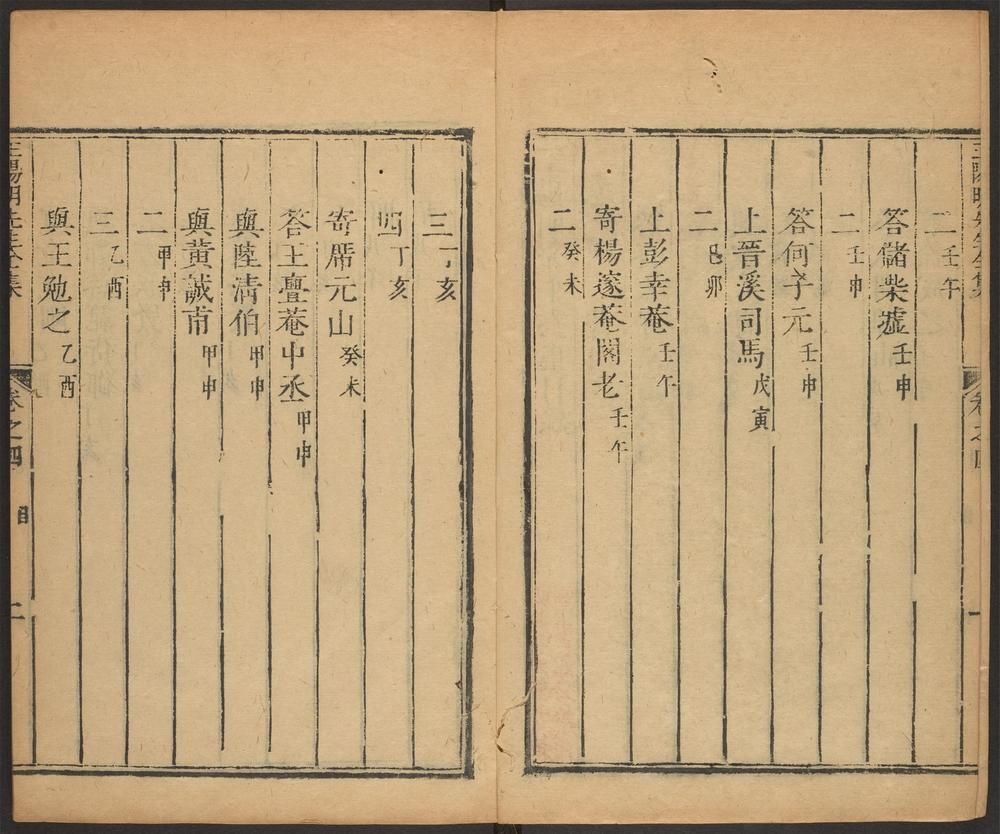 王陽明先生全集 卷之四 一
二 壬午
答儲柴墟 壬申
二 壬申
答何子元 壬申
上晉溪司馬 戊寅
二 己卯
上彭幸菴 壬午
寄楊邃菴閣老 壬午
二 癸未
三 丁亥
四 丁亥
寄席元山 癸未
答王亹菴中丞 甲申
與陸清伯 甲申
與黃誠甫 甲申
二 甲申
三 乙酉
與王勉之 乙酉
王陽明先生全集 卷之四 目 二